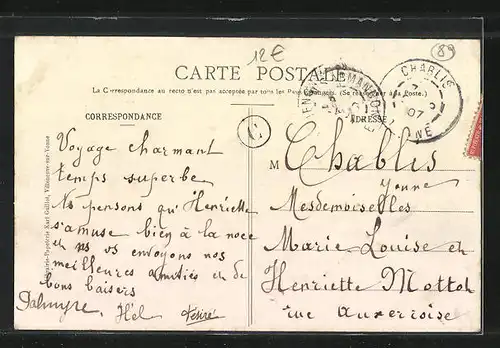 12€
89
CARTE POSTALE
La Correspondance au recto n'est pas acceptée par tous les Pays étrangers. (Se renseigner à la Poste.)
CORRESPONDANCE
ADRESSE
C
CHABLIS
07
YONNE
Voyage charmant
temps superbe
Ns pensons qu'Henriette
s'amuse bien à la noce
et ns vs envoyons nos
meilleures amitiés et de
bons baisers
Palmyre, Hel Désiré
M
Chablis
Yonne
Mesdemoiselles
Marie Louise et
Henriette Mottot
rue Auxerroise
Librairie-Papeterie Karl Guillot, Villeneuve-sur-Yonne